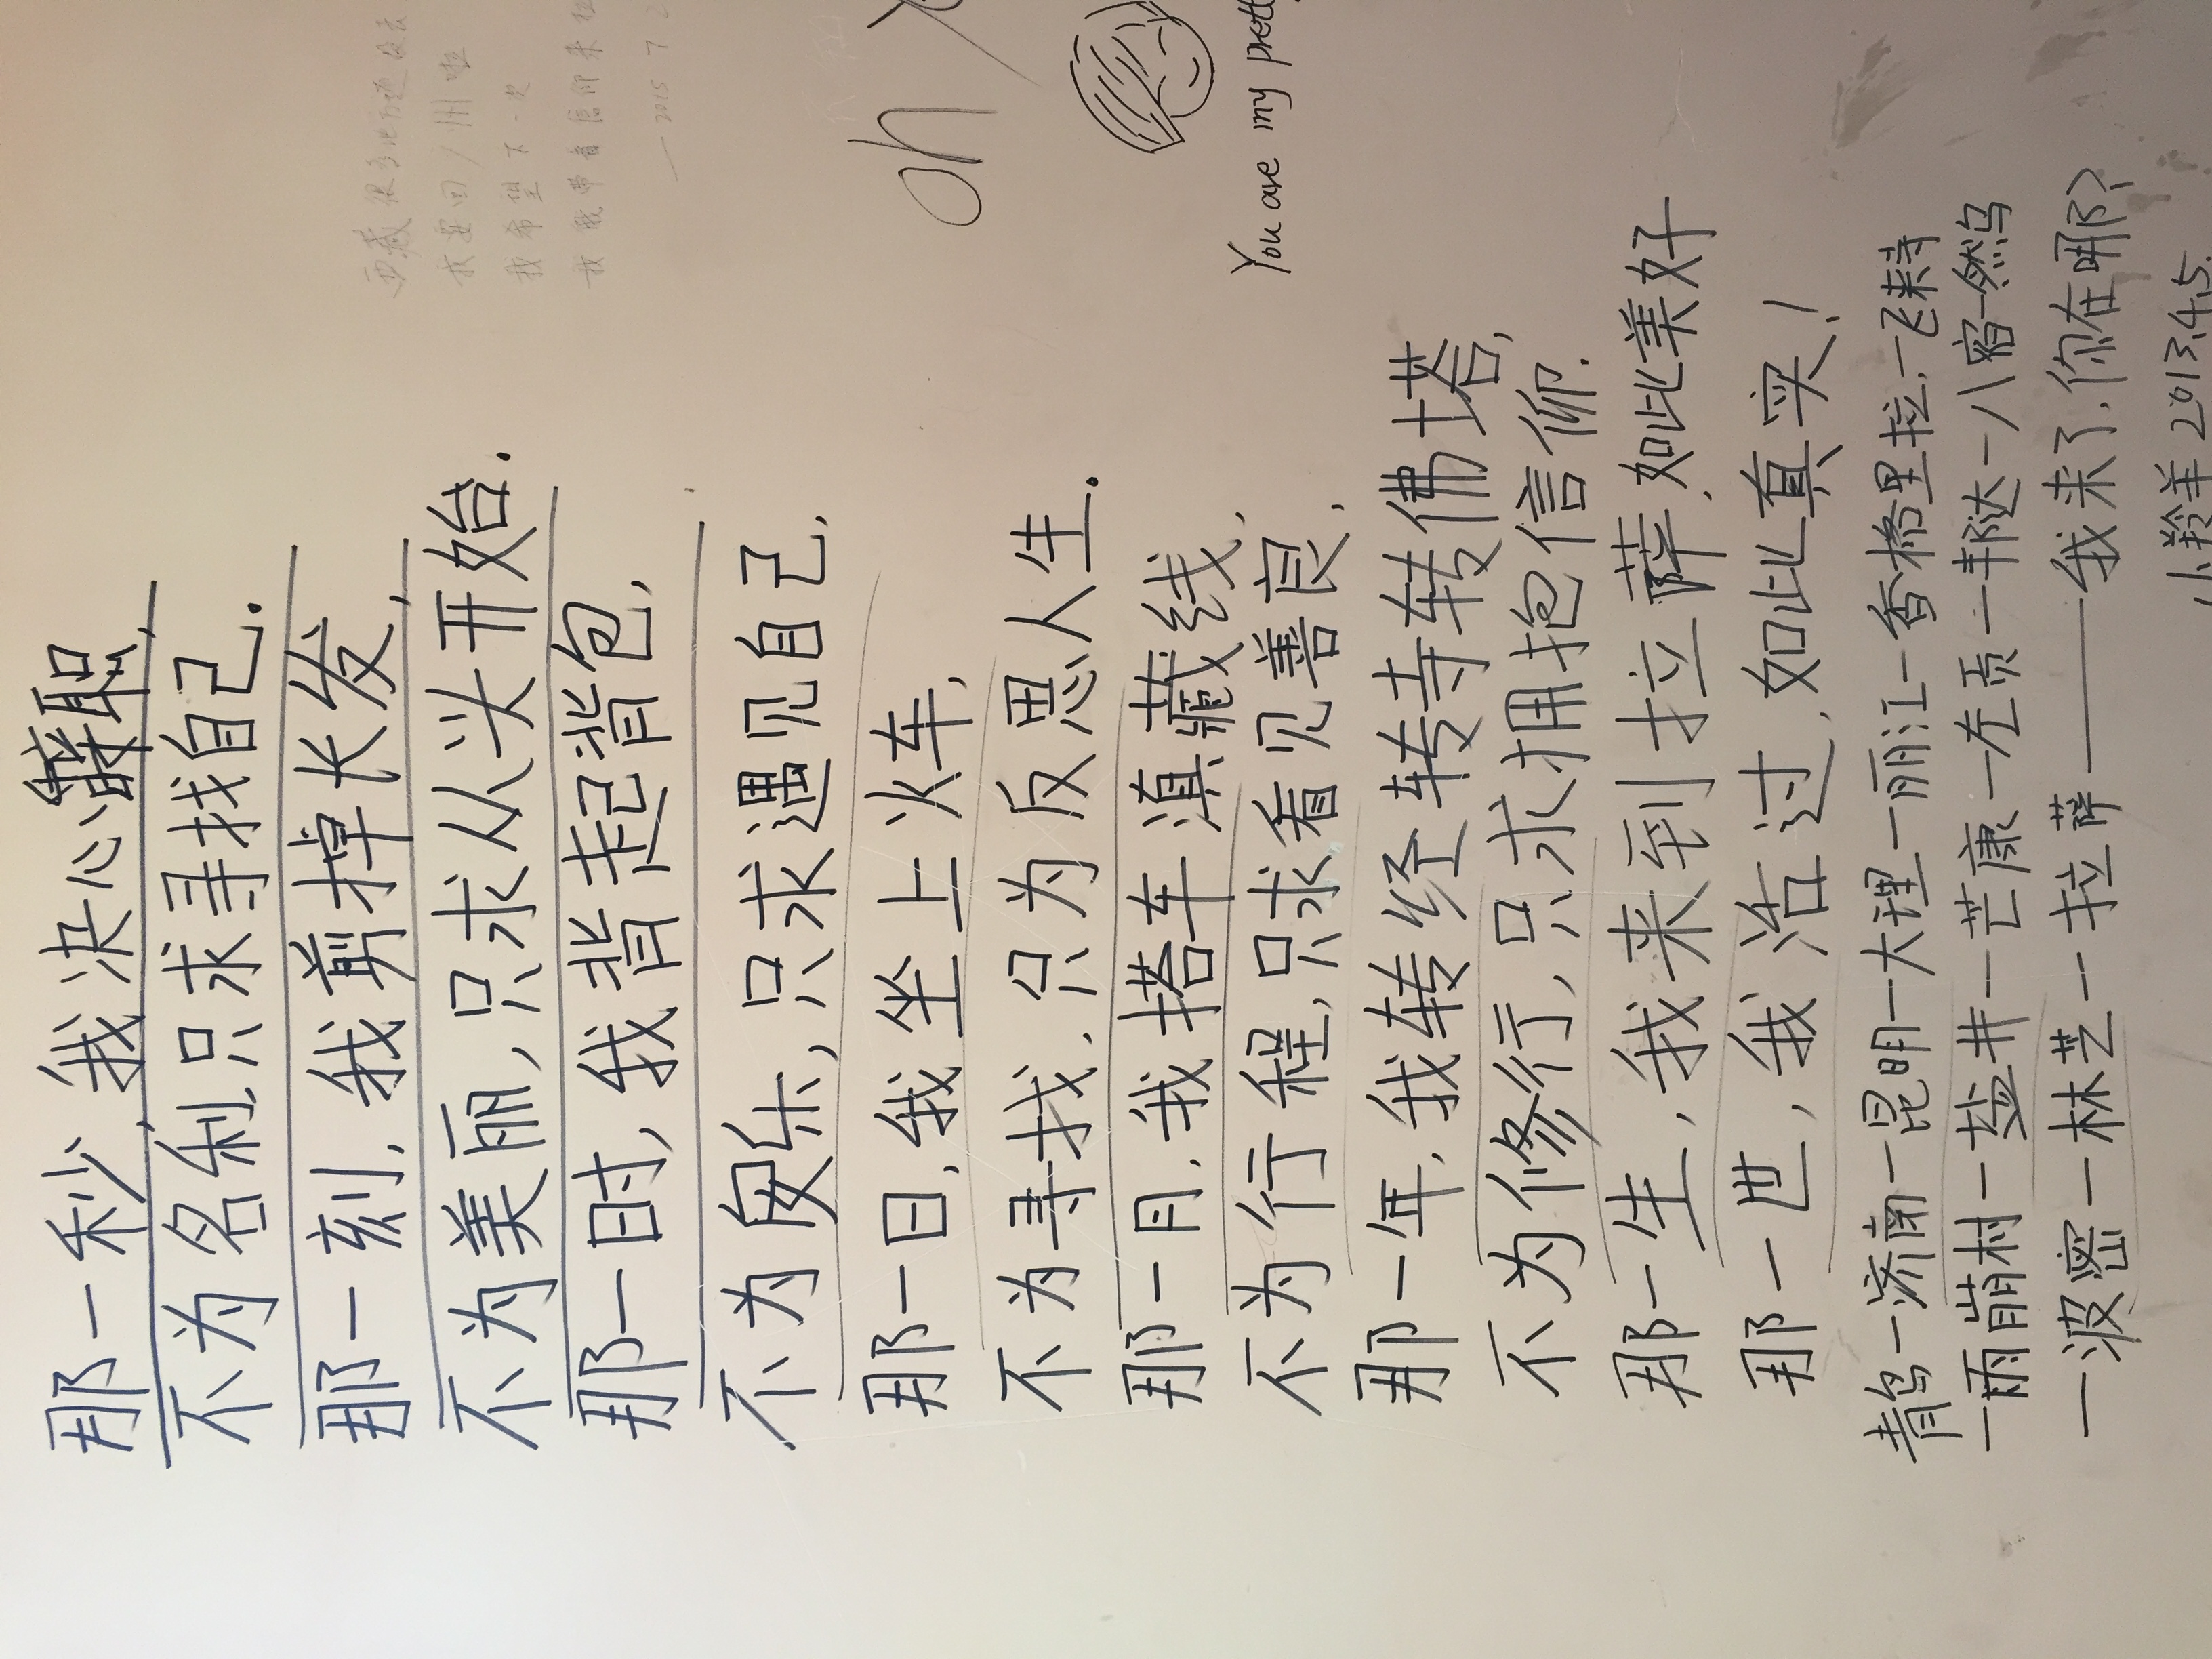 那一秒,我决心辞职,
不为名利只求寻找自己.
那一刻,我剪掉长发,
不为美丽,只求从头开始.
那一时,我背起背包,
不为安乐,只求遇见自己,
那一日,我坐上火车,
不为寻找,只为反思人生.
那一月,我搭车滇藏线,
不为行程,只求看见善良,
那一年,我转经转寺转佛塔,
不为修行,只求拥抱信仰.
那一生,我来到拉萨,如此美好
那一世,我活过,如此真实!
青岛一济南一昆明一大理一丽江一香格里拉,一飞来寺
一雨崩村一盐井一芒康一左贡一邦达一八宿一然乌
一波密一林芝一拉萨——我来了,你在哪?
小羚羊 2013,4,5.
西藏很多地方还没去
我要回广州啦
我希望下一次
我能带着信仰来拉
—2015 7 2
oh
You are my prett